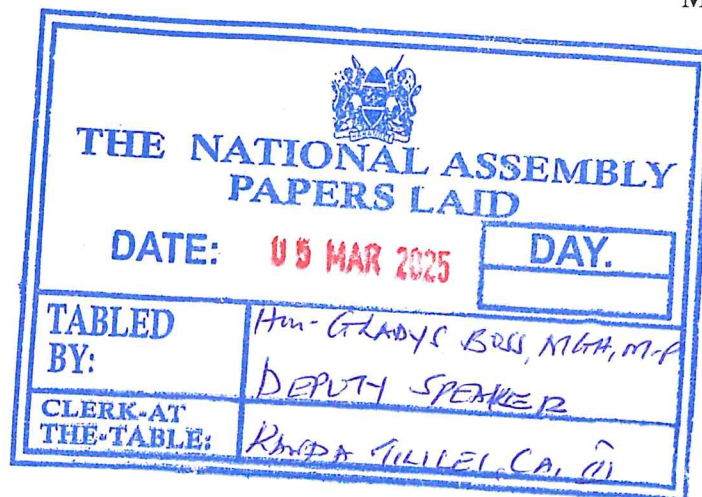 M
THE NATIONAL ASSEMBLY
PAPERS LAID
DATE: 05 MAR 2025 DAY.
TABLED
BY:
Hon. GLADYS BOSS, MGH, M.P
DEPUTY SPEAKER
CLERK-AT
THE-TABLE: